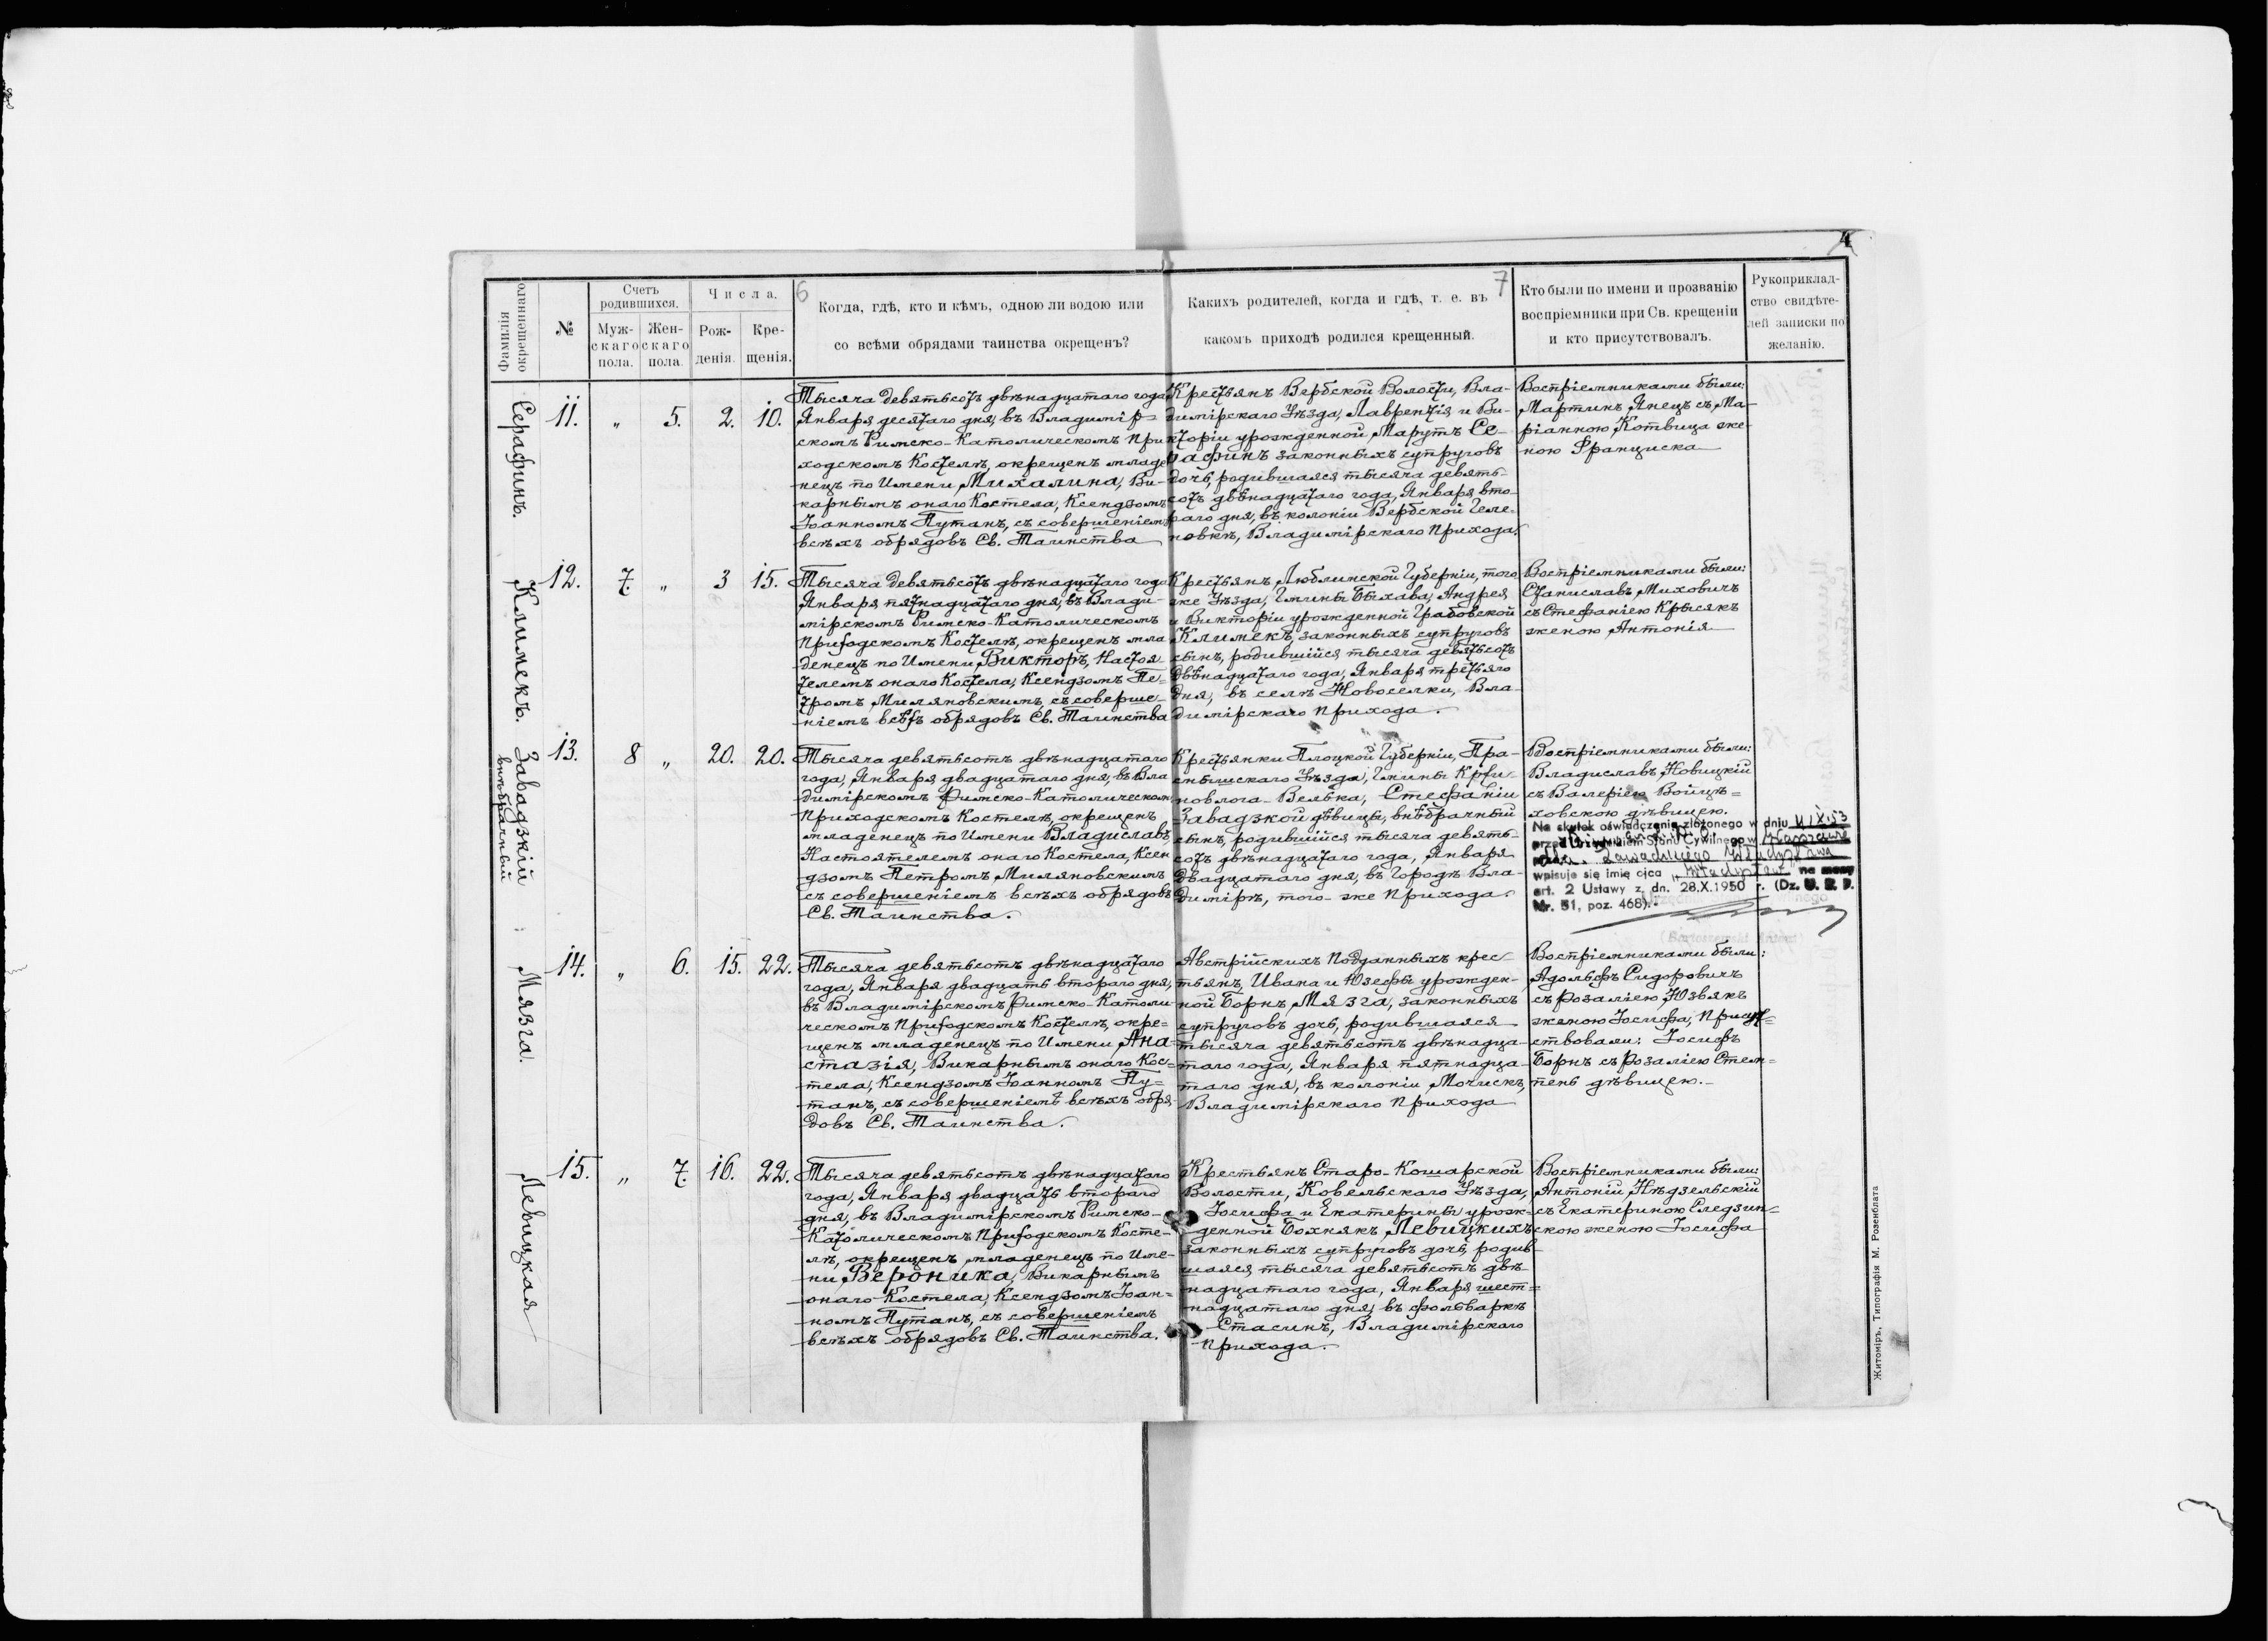 4
6
7
Фамилія окрещеннаго
№
Счетъ родившихся.
Муж-
скаго
пола.
Жен-
скаго
пола.
Числа.
Рож-
денія.
Кре-
щенія.
Когда, гдѣ, кто и кѣмъ, одною ли водою или
со всѣми обрядами таинства окрещенъ?
Какихъ родителей, когда и гдѣ, т. е. въ
какомъ приходѣ родился крещенный.
Кто были по имени и прозванію
воспріемники при Св. крещеніи
и кто присутствовалъ.
Рукоприклад-
ство свидѣте-
лей записки по
желанію.
Серафинъ.
11.
„
5.
2.
10.
Тысяча девятьсотъ двѣнадцатаго года
Января десятаго дня, въ Владимір-
скомъ Римско-Католическомъ При
ходскомъ Костелѣ, окрещенъ младе
нецъ по Имени Михалина, Ви-
карнымъ онаго Костела, Ксендзомъ
Іоанномъ Путанъ, съ совершеніемъ
всѣхъ обрядовъ Св. Таинства
Крестьянъ Вербской Волости, Вла-
димірскаго Уѣзда, Лаврентія и Ви-
кторіи урожденной Марутъ Се-
рафинъ законныхъ супруговъ
дочь, родившаяся тысяча девять-
сотъ двѣнадцатаго года, Января вто-
раго дня, въ колоніи Вербской Геле-
новкѣ, Владимірскаго Прихода.
Воспріемниками были:
Мартинъ Янецъ съ Ма-
ріанною Котвица же-
ною Франциска
Климекъ.
12.
7.
„
3
15.
Тысяча девятьсотъ двѣнадцатаго года
Января пятнадцатаго дня, въ Влади-
мірскомъ Римско-Католическомъ
Приходскомъ Костелѣ, окрещенъ мла
денецъ по Имени Викторъ, Настоя-
телемъ онаго Костела, Ксендзомъ Пе-
тромъ Миляновскимъ, съ соверше-
ніемъ всѣхъ обрядовъ Св. Таинства
Крестьянъ Люблинской Губерніи, того
же Уѣзда, Гмины Быхава, Андрея
и Викторіи урожденной Грабовской
Климекъ, законныхъ супруговъ
сынъ, родившійся тысяча девятьсотъ
двѣнадцатаго года, Января третьяго
дня, въ селѣ Новоселки, Вла-
димірскаго Прихода.
Воспріемниками были:
Станиславъ Миховичъ
съ Стефаніею Крысякъ
женою Антонія
Завадзкій
внѣбрачный
13.
8
„
20.
20.
Тысяча девятьсотъ двѣнадцатаго
года, Января двадцатаго дня, въ Вла
димірскомъ Римско-Католическомъ
Приходскомъ Костелѣ, окрещенъ
младенецъ по Имени Владиславъ,
Настоятелемъ онаго Костела, Ксен
дзомъ Петромъ Миляновскимъ
съ совершеніемъ всѣхъ обрядовъ
Св. Таинства.
Крестьянки Плоцкой Губерніи, Пра-
снышскаго Уѣзда, Гмины
Стефаніи
Завадзкой дѣвицы, внѣбрачный
сынъ, родившійся тысяча девять-
сотъ двѣнадцатаго года, Января
двадцатаго дня, въ Городѣ Вла-
димірѣ, того-же Прихода.
Воспріемниками были:
Владиславъ Новицкій
съ Валеріею Войцѣ=
ховскою дѣвицею.
Na skutek oświadczenia złożonego w dniu
przed Urzędnikiem Stanu Cywilnego w Warszawie
Zawadzkiego Władysława
wpisuje się imię ojca „Władysław" na mocy
art. 2 Ustawy z dn. 28.X.1950 r. (Dz. U. R. P.
Nr. 51, poz. 468).
Мязга.
14.
„
6.
15.
22.
Тысяча девятьсотъ двѣнадцатаго
года, Января двадцать втораго дня,
въ Владимірскомъ Римско-Католи-
ческомъ Приходскомъ Костелѣ, окре=
щенъ младенецъ по Имени Ана=
стазія, Викарнымъ онаго Кос=
тела, Ксендзомъ Іоанномъ Пу=
танъ, съ совершеніемъ всѣхъ обря-
довъ Св. Таинства.
Австрійскихъ Подданныхъ крес-
тьянъ, Ивана и Юзефы урожден-
ной Борнъ, Мязга, законныхъ
супруговъ дочь, родившаяся
тысяча девятьсотъ двѣнадца-
таго года, Января пятнадца-
таго дня, въ колоніи Мочискъ,
Владимірскаго Прихода
Воспріемниками были:
Адольфъ Сидоровичъ
съ Розаліею Юзвякъ
женою Іосифа, Присут=
ствовали: Іосифъ
Борнъ съ Розаліею Стем=
пень дѣвицею.
Левицкая
15.
„
7.
16.
22.
Тысяча девятьсотъ двѣнадцатаго
года, Января двадцать втораго
дня, въ Владимірскомъ Римско-
Католическомъ Приходскомъ Косте-
лѣ, окрещенъ младенецъ по Име-
ни Вероника, Викарнымъ
онаго Костела, Ксендзомъ Іоан=
номъ Путанъ, съ совершеніемъ
всѣхъ обрядовъ Св. Таинства.
Крестьянъ Старо-Кошарской
Волости, Ковельскаго Уѣзда,
Іосифа и Екатерины урож-
денной Бохнякъ, Левицкихъ
законныхъ супруговъ дочь, родив-
шаяся, тысяча девятьсотъ двѣ-
надцатаго года, Января шест=
надцатаго дня, въ фольваркѣ
Стасинъ, Владимірскаго
Прихода.
Воспріемниками были:
Антоній Нѣдзельскій
съ Екатериною Следзин=
скою женою Іосифа
Житоміръ, Типографія М. Розенблата